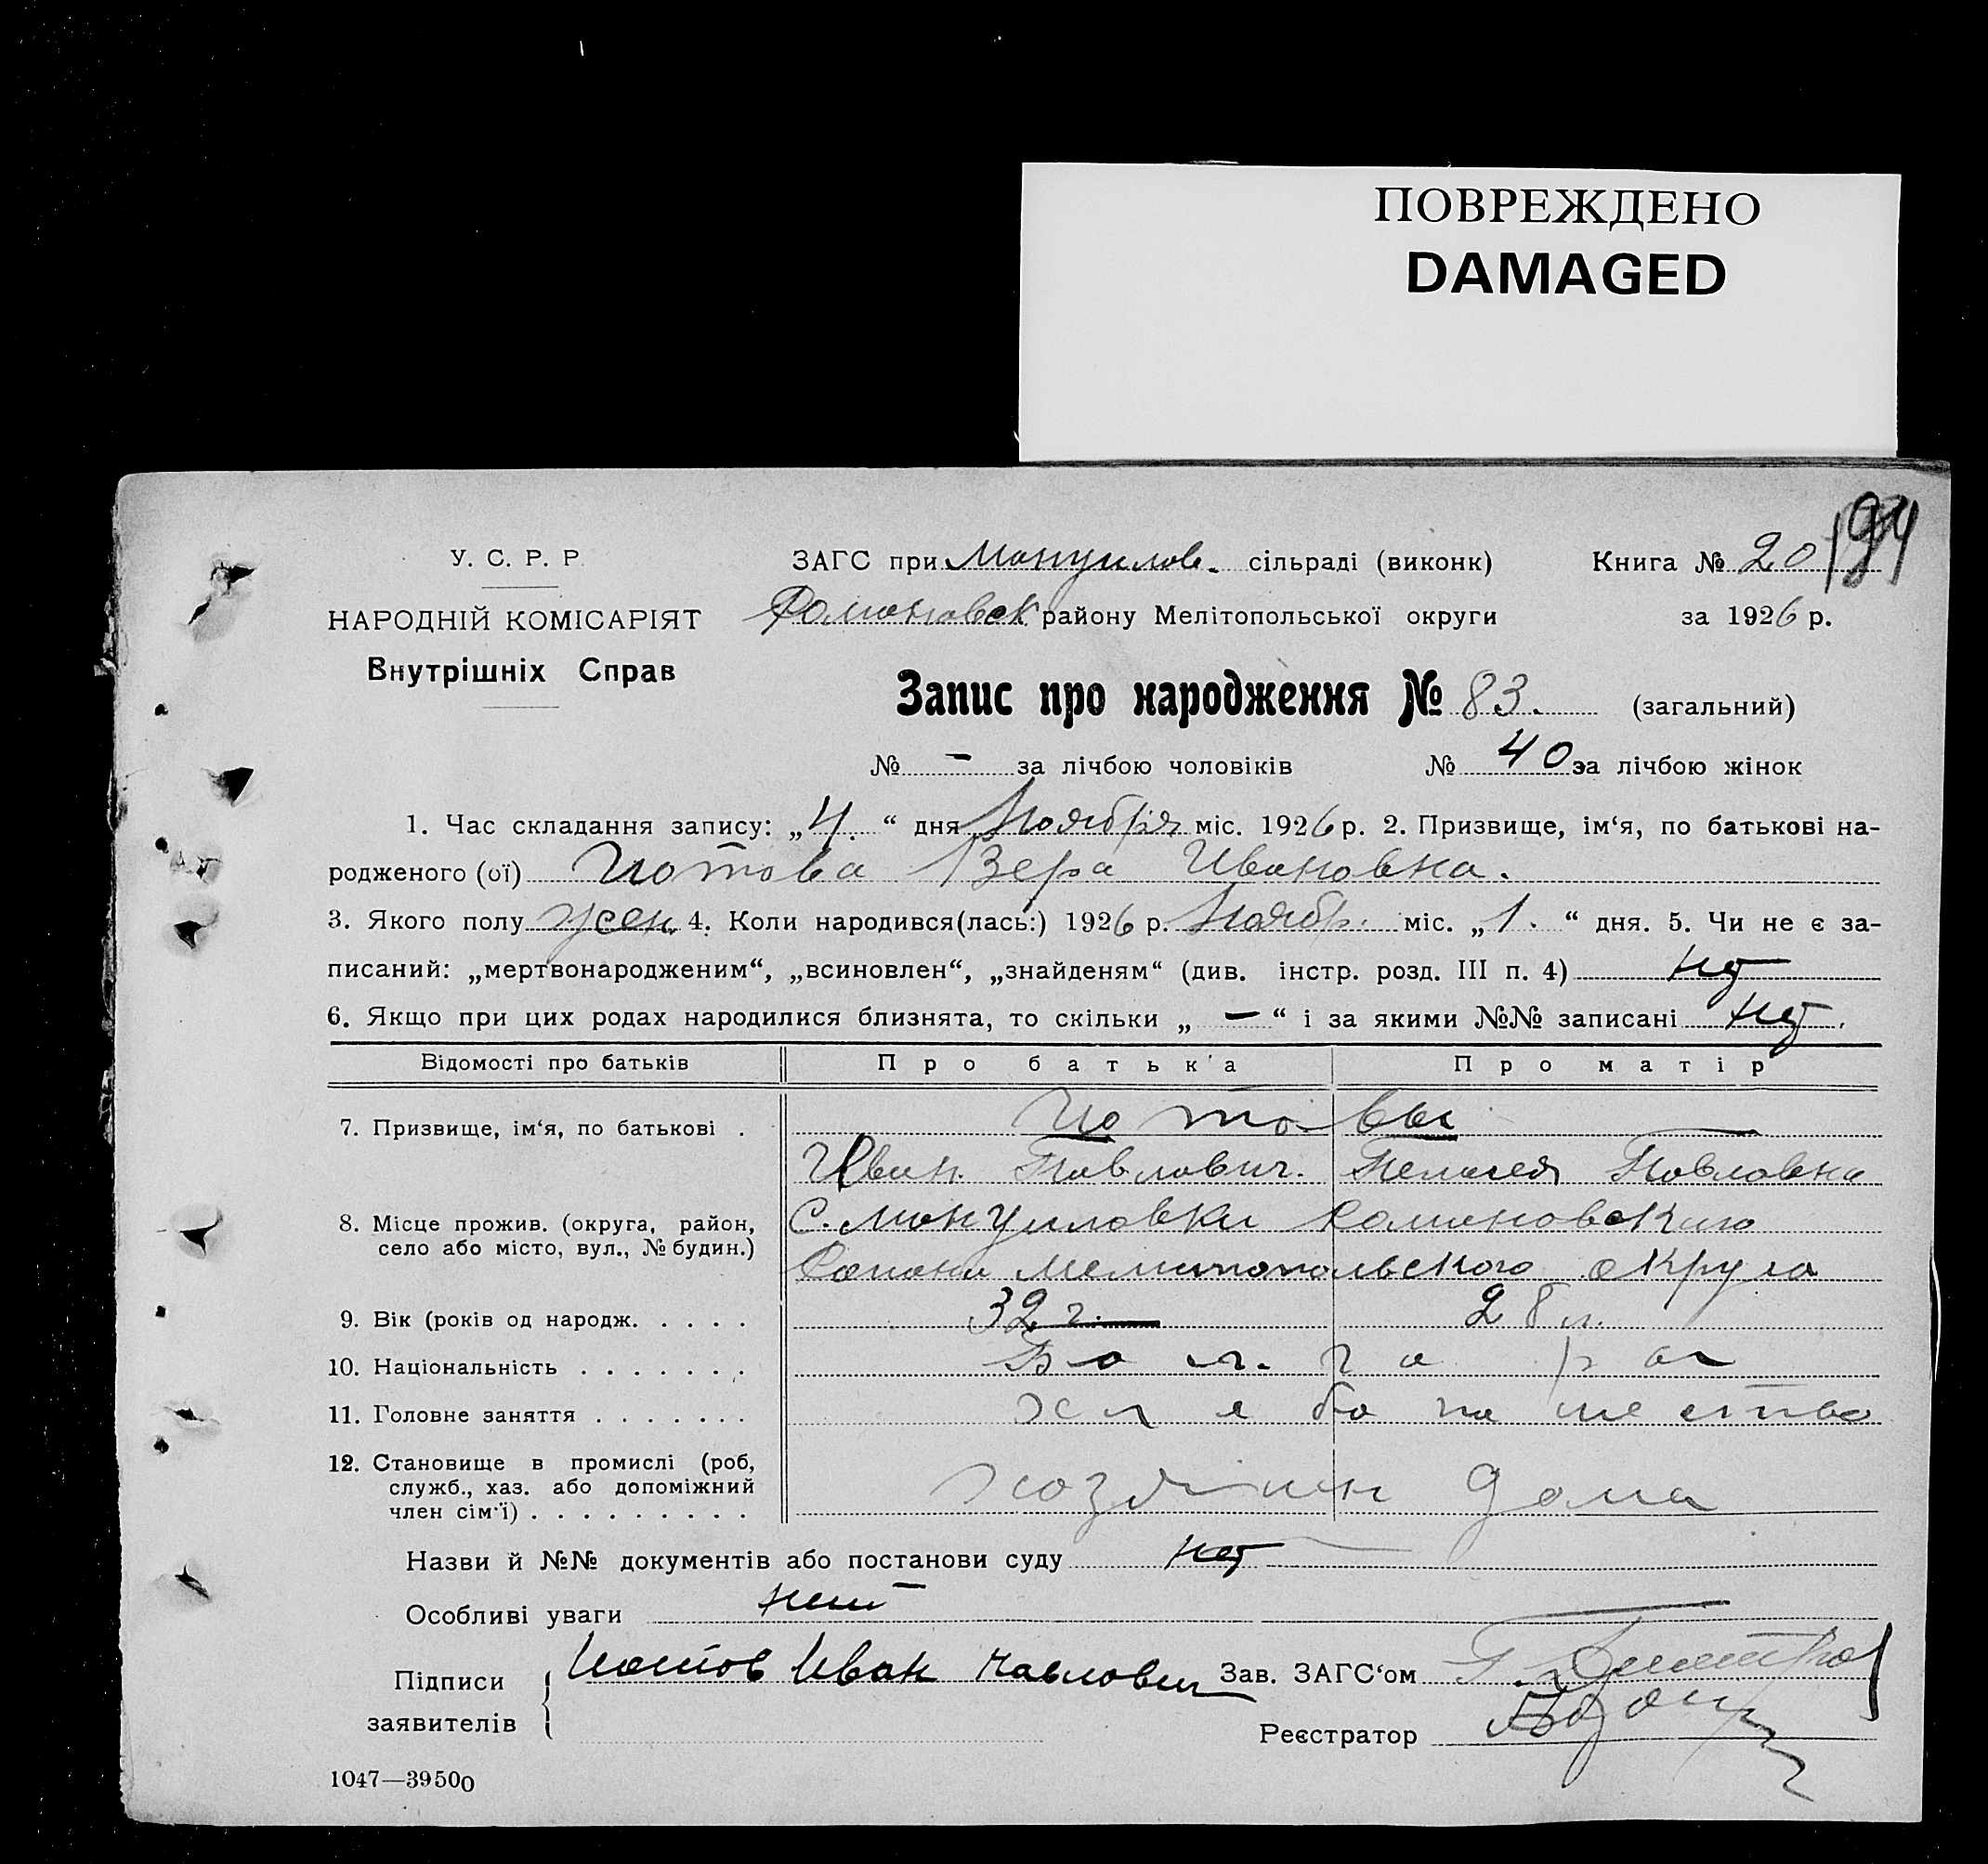 ПОВРЕЖДЕНО
DAMAGED
194
У. С. Р. Р.
ЗАГС при Мануилов. сільраді (виконк)
Книга № 20
НАРОДНІЙ КОМІСАРІЯТ
Романовск району Мелітопольської округи
за 1926 р.
Внутрішніх Справ
Запис про народження № 83. (загальний)
№ — за лічбою чоловіків № 40 за лічбою жінок
1. Час складання запису: „4.“ дня Ноября міс. 1926 р. 2. Призвище, ім‘я, по батькові на-
родженого (ої) Иотова Вера Ивановна.
3. Якого полу жен. 4. Коли народився(лась:) 1926 р. Ноябр. міс. „1.“ дня. 5. Чи не є за-
писаний: „мертвонародженим“, „всиновлен“, „знайденям“ (див. інстр. розд. III п. 4) нет
6. Якщо при цих родах народилися близнята, то скільки „ — “ і за якими №№ записані нет.
Відомості про батьків Про батька Про матір
7. Призвище, ім‘я, по батькові . Иотовы
Иван Павлович. Пелагея Павловна
8. Місце прожив. (округа, район, С. Мануиловки Романовского
село або місто, вул., № будин.) Района Мелитопольского округа
9. Вік (років од народж. . . . . 32 г. 28 л.
10. Національність . . . . . . . Болгары
11. Головне заняття . . . . . . . хлебопашество
12. Становище в промислі (роб,
служб., хаз. або допоміжний хозяин дома
член сім‘ї) . . . . . . . . .
Назви й №№ документів або постанови суду нет
Особливі уваги нет
Підписи Иотов Иван Павлович Зав. ЗАГС‘ом
заявителів
Реєстратор
1047—39500